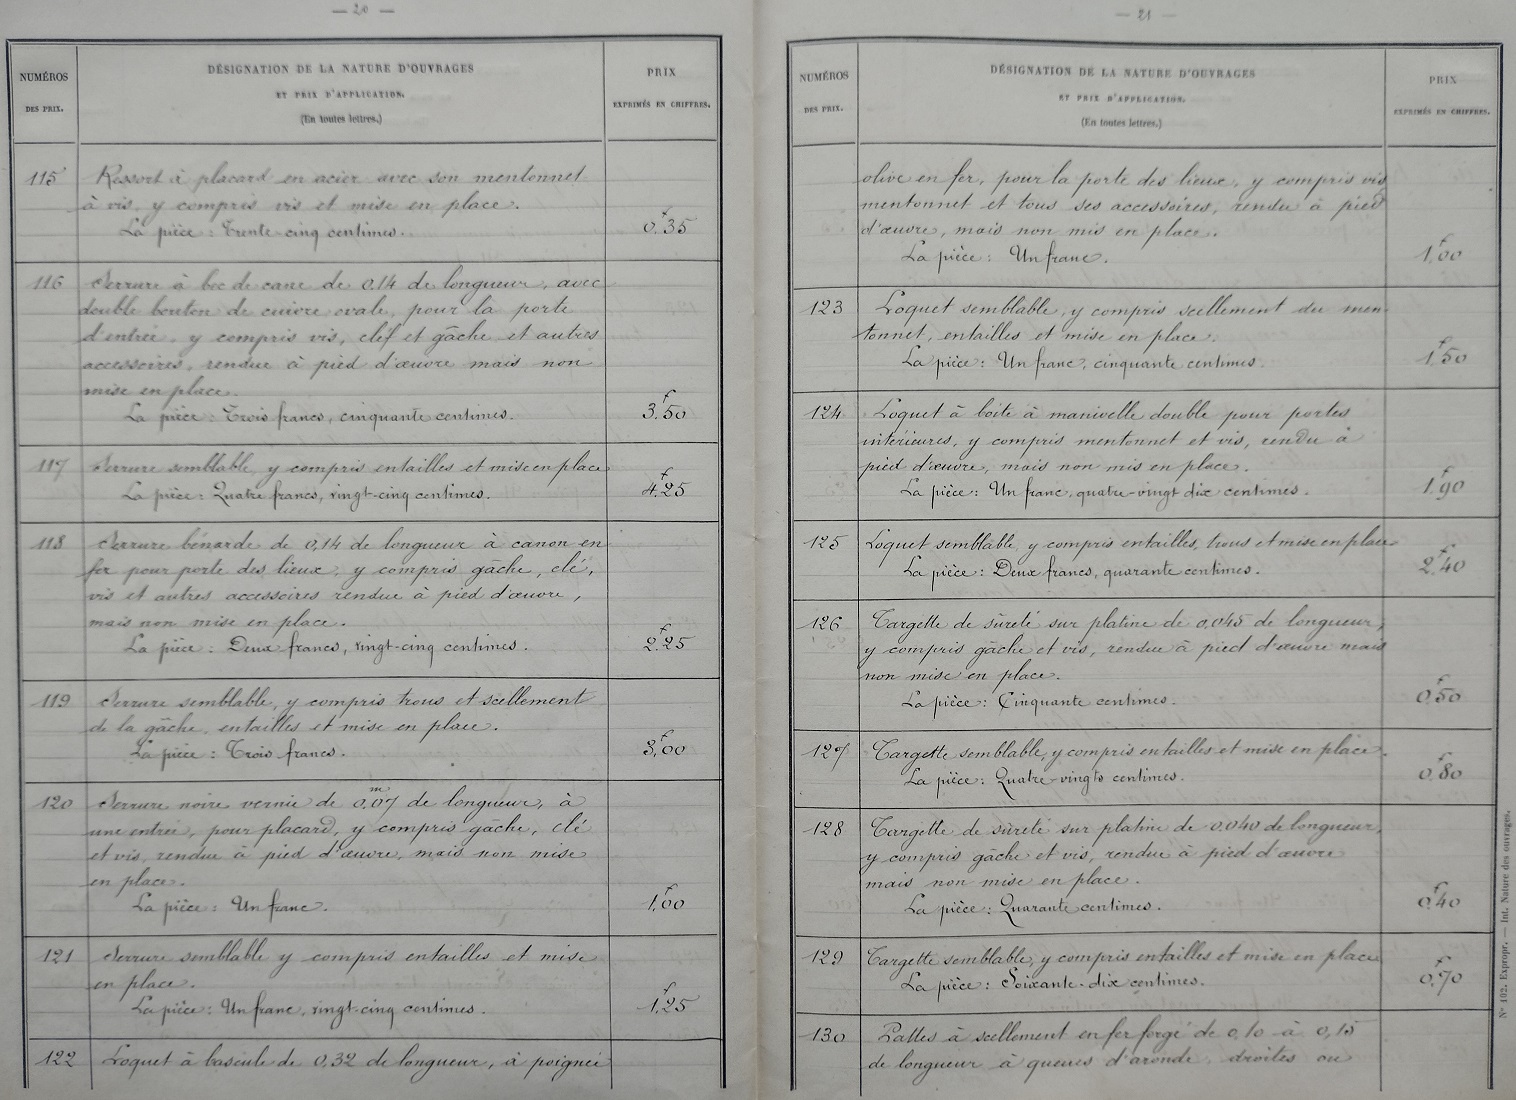 — 20 —
NUMÉROS
DES PRIX.
DÉSIGNATION DE LA NATURE D'OUVRAGES
ET PRIX D'APPLICATION.
(En toutes lettres.)
PRIX
EXPRIMÉS EN CHIFFRES.
115 Ressort à placard en acier avec son mentonnet
à vis, y compris vis et mise en place.
La pièce : Trente-cinq centimes. 0f,35
116 Serrure à bec de cane de 0,14 de longueur, avec
double bouton de cuivre ovale, pour la porte
d'entrée, y compris vis, cléf et gâche et autres
accessoires, rendue à pied d'œuvre mais non
mise en place.
La pièce : Trois francs, cinquante centimes. 3f,50
117 Serrure semblable, y compris entailles et mise en place
La pièce : Quatre francs, vingt-cinq centimes. 4f,25
118 Serrure bénarde de 0,14 de longueur à canon en
fer pour porte des lieux, y compris gâche, clé,
vis et autres accessoires rendue à pied d'œuvre,
mais non mise en place.
La pièce : Deux francs, vingt-cinq centimes. 2f,25
119 Serrure semblable, y compris trous et scellement
de la gâche, entailles et mise en place.
La pièce : Trois francs. 3f,00
120 Serrure noire vernie de 0m,07 de longueur, à
une entrée, pour placard, y compris gâche, clé
et vis, rendue à pied d'œuvre, mais non mise
en place.
La pièce : Un franc. 1f,00
121 Serrure semblable y compris entailles et mise
en place.
La pièce : Un franc, vingt-cinq centimes. 1f,25
122 Loquet à bascule de 0,32 de longueur, à poignée
— 21 —
NUMÉROS
DES PRIX.
DÉSIGNATION DE LA NATURE D'OUVRAGES
ET PRIX D'APPLICATION.
(En toutes lettres.)
PRIX
EXPRIMÉS EN CHIFFRES.
olive en fer, pour la porte des lieux, y compris vis
mentonnet et tous ses accessoires, rendu à pied
d'œuvre, mais non mis en place.
La pièce : Un franc. 1f,00
123 Loquet semblable, y compris scellement du men-
tonnet, entailles et mise en place.
La pièce : Un franc, cinquante centimes. 1f,50
124 Loquet à boite à manivelle double pour portes
intérieures, y compris mentonnet et vis, rendu à
pied d'œuvre, mais non mis en place.
La pièce : Un franc, quatre-vingt dix centimes. 1f,90
125 Loquet semblable, y compris entailles, trous et mise en place
La pièce : Deux francs, quarante centimes. 2f,40
126 Targette de sûreté sur platine de 0,045 de longueur,
y compris gâche et vis, rendue à pied d'œuvre mais
non mise en place.
La pièce : Cinquante centimes. 0f,50
127 Targette semblable, y compris entailles et mise en place.
La pièce : Quatre-vingts centimes. 0f,80
128 Targette de sûreté sur platine de 0,040 de longueur,
y compris gâche et vis, rendue à pied d'œuvre
mais non mise en place.
La pièce : Quarante centimes. 0f,40
129 Targette semblable, y compris entailles et mise en place
La pièce : Soixante-dix centimes. 0f,70
130 Pattes à scellement en fer forgé de 0,10 à 0,15
de longueur à queues d'aronde, droites ou
N° 102. Expropr. — Int. Nature des ouvrages.